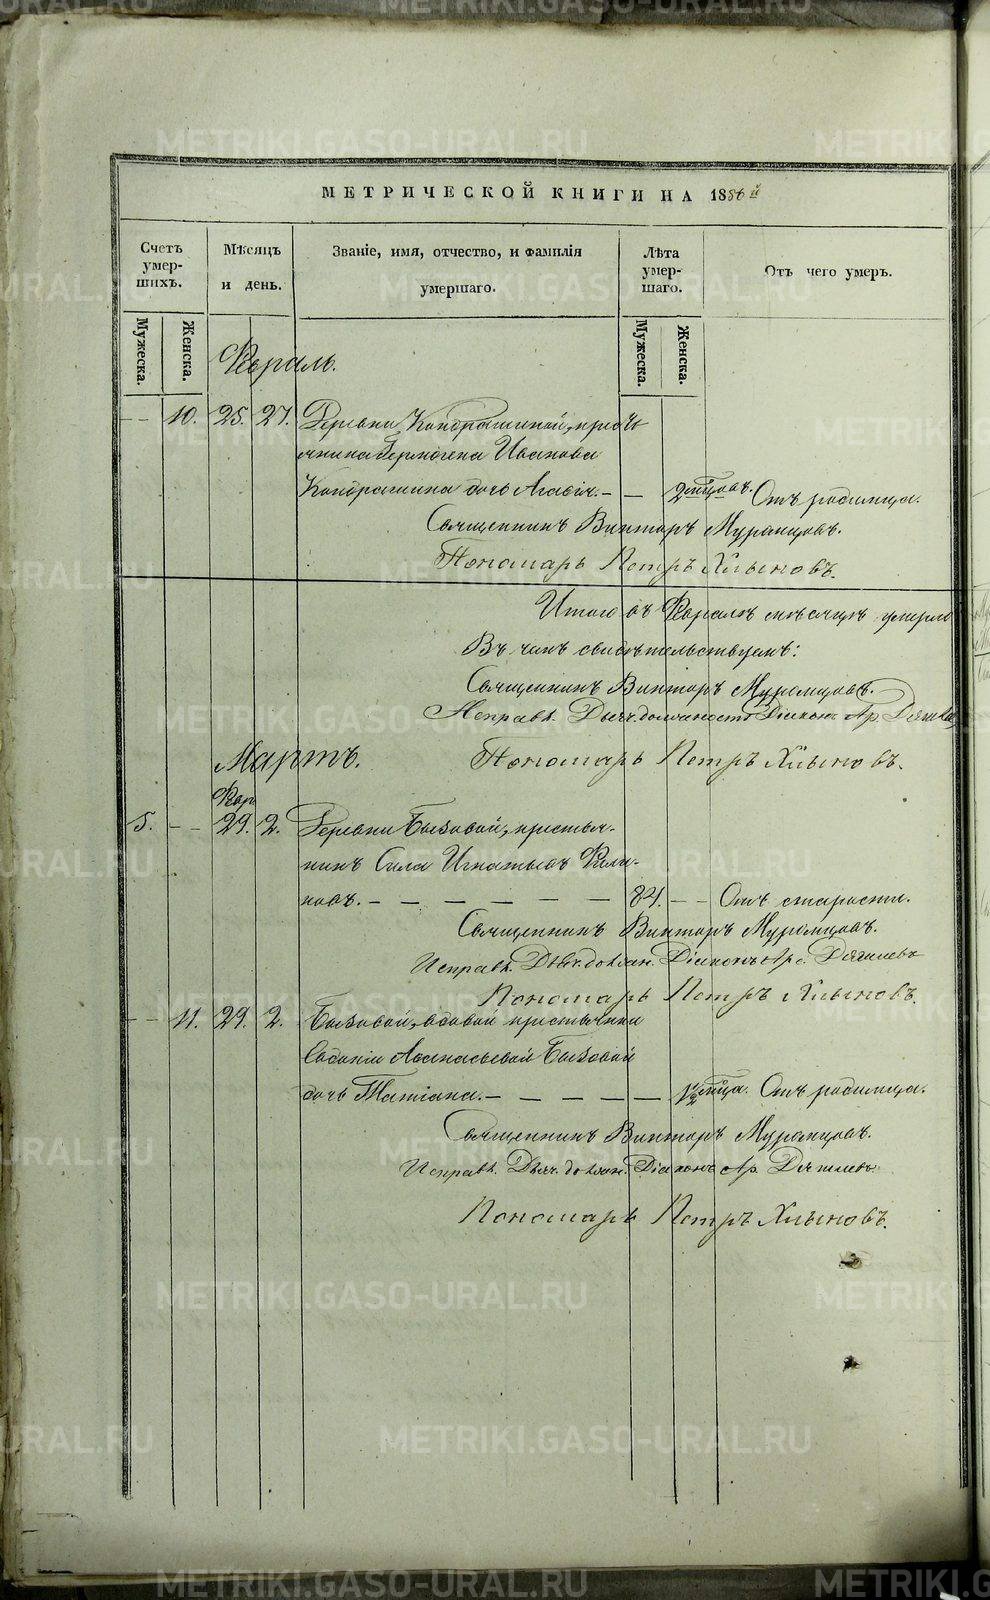 МЕТРИЧЕСКОЙ КНИГИ НА 1856й
Счетъ умер- шихъ.
Мѣсяцъ и день.
Званіе, имя, отчество, и фамилія умершаго.
Лѣта умер- шаго.
Отъ чего умеръ.
Мужеска.
Женска.
Мужеска.
Женска.
Февраль.
— 10. 25. 27. Деревни Кондрашиной, крестья
янина Гермогена Иванова
Кондрашина дочь Агафія. — — 2 мѣсцовъ. Отъ родимца.
Священникъ Викторъ Муромцовъ.
Пономарь Петръ Хлыновъ.
Итого въ Февралѣ мѣсяцѣ умерло
Въ чемъ свидѣтельствуемъ:
Священникъ Викторъ Муромцовъ.
Исправл. Дьяч. должность Діаконъ Ар. Дягилевъ
Мартъ.
Пономарь Петръ Хлыновъ.
Фев
5. — — 29. 2. Деревни Быковой, крестья-
нинъ Сила Игнатьевъ Фили-
новъ. — — — — — — 84. — — Отъ старости.
Священникъ Викторъ Муромцовъ.
Исправл. Дьяч. должн. Діаконъ Ар. Дягилевъ
Пономарь Петръ Хлыновъ.
— — 11. 29. 2. Быковой, вдовой крестьянки
Евдокіи Афанасьевой Быковой
дочь Татіана. — — — — — 1/2 мѣсца. Отъ родимца.
Священникъ Викторъ Муромцовъ.
Исправл. Дьяч. должн. Діаконъ Ар. Дягилевъ
Пономарь Петръ Хлыновъ.
METRIKI.GASO-URAL.RU